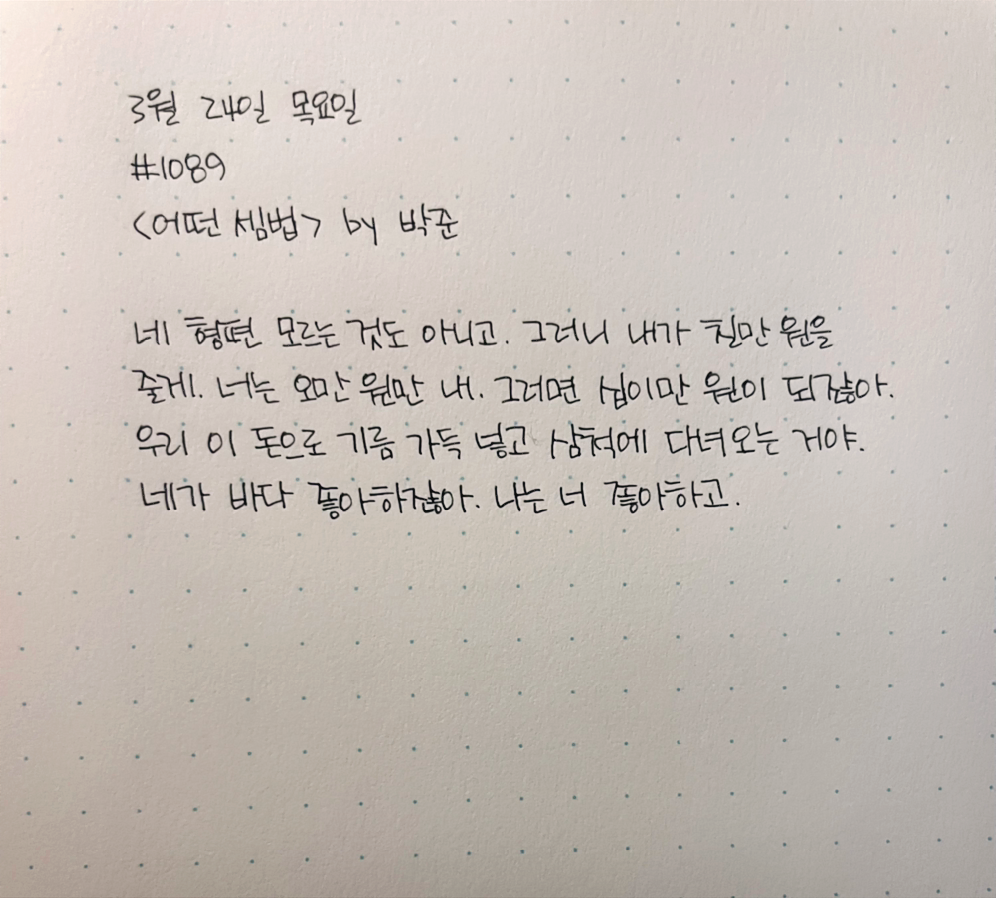 3월 24일 목요일
#1089
<어떤 셈법> by 박준
네 형편 모르는 것도 아니고. 그러니 내가 칠만 원을
줄게. 너는 오만 원만 내. 그러면 십이만 원이 되잖아.
우리 이 돈으로 기름 가득 넣고 삼척에 다녀오는 거야.
네가 바다 좋아하잖아. 나는 너 좋아하고.